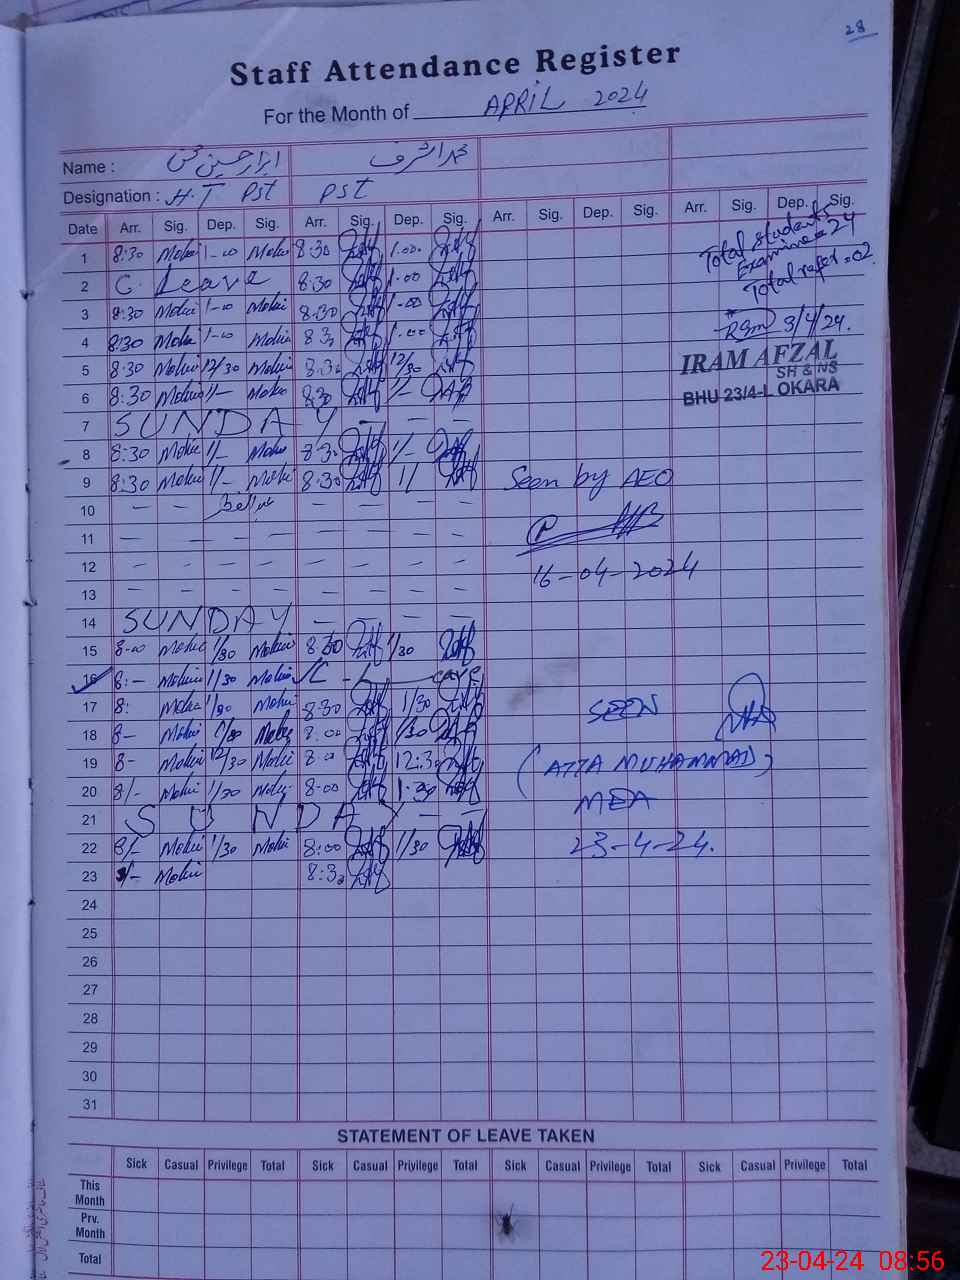 28
Staff Attendance Register
For the Month of APRIL 2024
Name : ابرار حسین محمد اشرف
Designation : H.T PST PST
Date Arr. Sig. Dep. Sig. Arr. Sig. Dep. Sig. Arr. Sig. Dep. Sig. Arr. Sig. Dep. Sig.
Total students
Examine = 24
Total refer = 02
3/4/24.
IRAM AFZAL
SH & NS
BHU 23/4-L OKARA
1 8:30 Mohsi 1-00 Mohsi 8:30 1.00
2 C. Leave 8:30 1.00
3 8:30 Mohsi 1-00 Mohsi 8:30 1-00
4 8:30 Mohsi 1-00 Mohsi 8:30 1.00
5 8:30 Mohsi 12/30 Mohsi 8:30 12/30
6 8:30 Mohsi 1/- Mohsi 8:30 1/-
7 SUNDAY - - -
8 8:30 Mohsi 1/- Mohsi 8:30 1/-
9 8:30 Mohsi 1/- Mohsi 8:30 1/ Seen by AEO
10 - - عیدالفطر - - - -
11 - - - - - - - -
12 - - - - - - - - 16-04-2024
13 - - - - - - - -
14 SUNDAY - - - -
15 8-00 Mohsi 1/30 Mohsi 8:30 1/30
16 8:- Mohsi 1/30 Mohsi C - Leave
17 8: Mohsi 1/30 Mohsi 8:30 1/30 SEEN
18 8- Mohsi 1/30 Mohsi 8:00 1/30
19 8- Mohsi 12/30 Mohsi 8:00 12:30 (ATTA MUHAMMAD)
20 8/- Mohsi 1/30 Mohsi 8-00 1-30 MEA
21 SUNDAY - -
22 8/- Mohsi 1/30 Mohsi 8:00 1/30 23-4-24.
23 8/- Mohsi 8:30
24
25
26
27
28
29
30
31
STATEMENT OF LEAVE TAKEN
Sick Casual Privilege Total Sick Casual Privilege Total Sick Casual Privilege Total Sick Casual Privilege Total
This Month
Prv. Month
Total
23-04-24 08:56